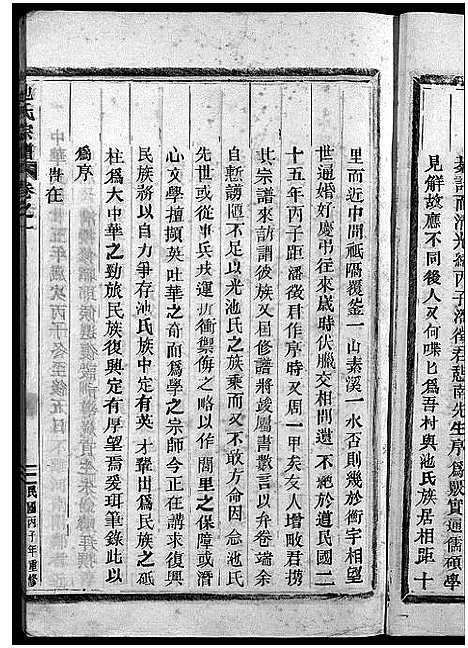 纂譜而光緒丙子潘徵君慰南先生序焉嚴實通儒碩學
見解故應不同後人又何喋匕爲吾村與池氏族居相距十
里而近中間祗隔覆釜一山素溪一水否則幾於衡宇相望
世通婚好慶弔往來歲時伏臘交相問遺不絶於道民國二
十五年丙子距潘徵君作序時又周一甲矣友人增畋君携
其宗譜來訪謂彼族又屆修譜將竣屬書數言以弁卷端余
自慚譾陋不足以光池氏之族乘而又不敢方命因念池氏
先世或從事兵歧運折衝禦侮之略以作閭里之保障或潛
心文學擅擷英吐華之奇而爲學之宗師今正在講求復興
民族務以自力爭存池氏族中定有英才輩出爲民族之砥
柱爲大中華之勁旅民族復興定有厚望焉爰珥筆錄此以
爲序
時在
中華民國二十五年歲次丙子冬至後五日
池氏宗譜 卷之一
民國丙子年重修